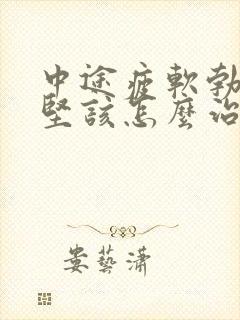 中途疲軟勃
堅該怎麼治
娄藝瀟